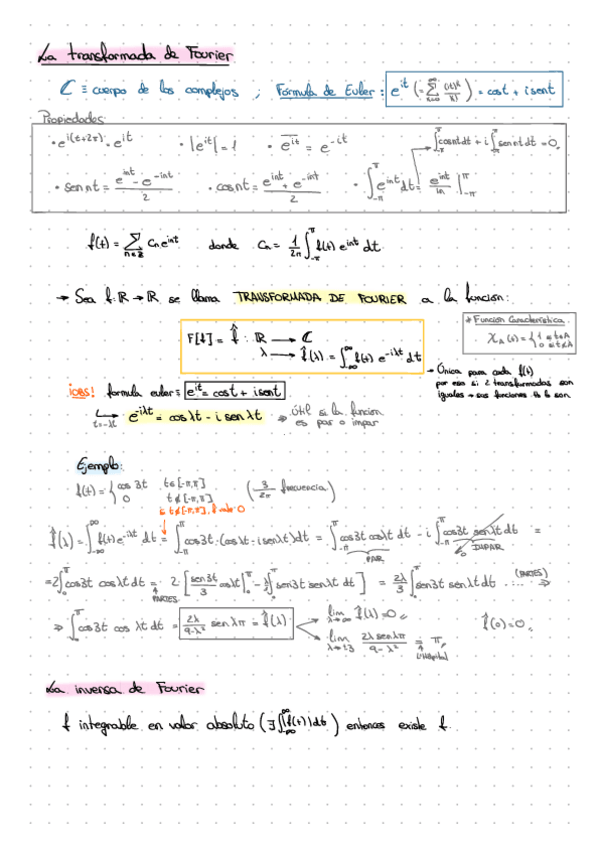 La transformada de Fourier
ℂ ≡ cuerpo de los complejos ; Fórmula de Euler: e^{it} (= ∑_{k=0}^{∞} (it)^k/k!) = cost + i sent
Propiedades
• e^{i(t+2π)} = e^{it} • |e^{it}| = 1 • \overline{e^{it}} = e^{-it} ∫_{-π}^{π} cosnt dt + i ∫_{-π}^{π} sennt dt = 0
• sen nt = (e^{int} - e^{-int})/2 • cosnt = (e^{int} + e^{-int})/2 • ∫_{-π}^{π} e^{int} dt = e^{int}/in |_{-π}^{π}
f(t) = ∑_{n∈ℤ} C_n e^{int} donde C_n = 1/2π ∫_{-π}^{π} f(t) e^{int} dt
→ Sea f: ℝ → ℝ se llama TRANSFORMADA DE FOURIER a la función:
* Función Característica
χ_A(s) = { 1 si t∈A
0 si t∉A
F[f] = f̂ : ℝ ⟶ ℂ
λ ⟶ f̂(λ) = ∫_{-∞}^{∞} f(t) e^{-iλt} dt
→ Única para cada f(t)
por eso si 2 transformadas son
iguales → sus funciones tb lo son
¡OBS! formula euler ≡ e^{it} = cost + i sent
t=-λt e^{-iλt} = cosλt - i senλt ⇒ Útil si la función
es par o impar
Ejemplo:
f(t) = { cos 3t t∈[-π,π]
0 t∉[-π,π] (3/2π frecuencia)
si t∉[-π,π], f vale 0
f̂(λ) = ∫_{-∞}^{∞} f(t) e^{-iλt} dt = ∫_{-π}^{π} cos3t·(cosλt - i senλt) dt = ∫_{-π}^{π} cos3t cosλt dt - i ∫_{-π}^{π} cos3t senλt dt =
PAR 0 IMPAR
= 2∫_{0}^{π} cos3t cosλt dt = 2·[ sen3t/3 cosλt |_{0}^{π} - λ/3 ∫_{0}^{π} sen3t senλt dt ] = 2λ/3 ∫_{0}^{π} sen3t senλt dt .... (PARTES) ⇒
PARTES
⇒ ∫_{0}^{π} cos3t cos λt dt = 2λ/(9-λ²) sen λπ = f̂(λ) lim_{λ→∞} f̂(λ) = 0 f̂(0) = 0
lim_{λ→±3} 2λ senλπ/(9-λ²) = π
L'Hôpital
La inversa de Fourier
f integrable en valor absoluto (∃ ∫_{-∞}^{∞} |f(t)| dt) entonces existe f.